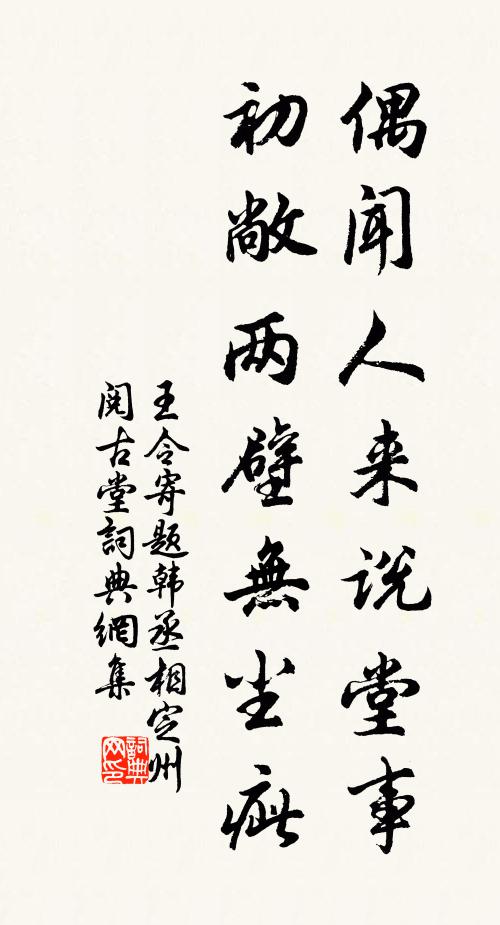 偶闻人来说堂事
初敞两壁無尘疵
王令寄题韩丞相定州
阅古堂詞典網集
詞典網印